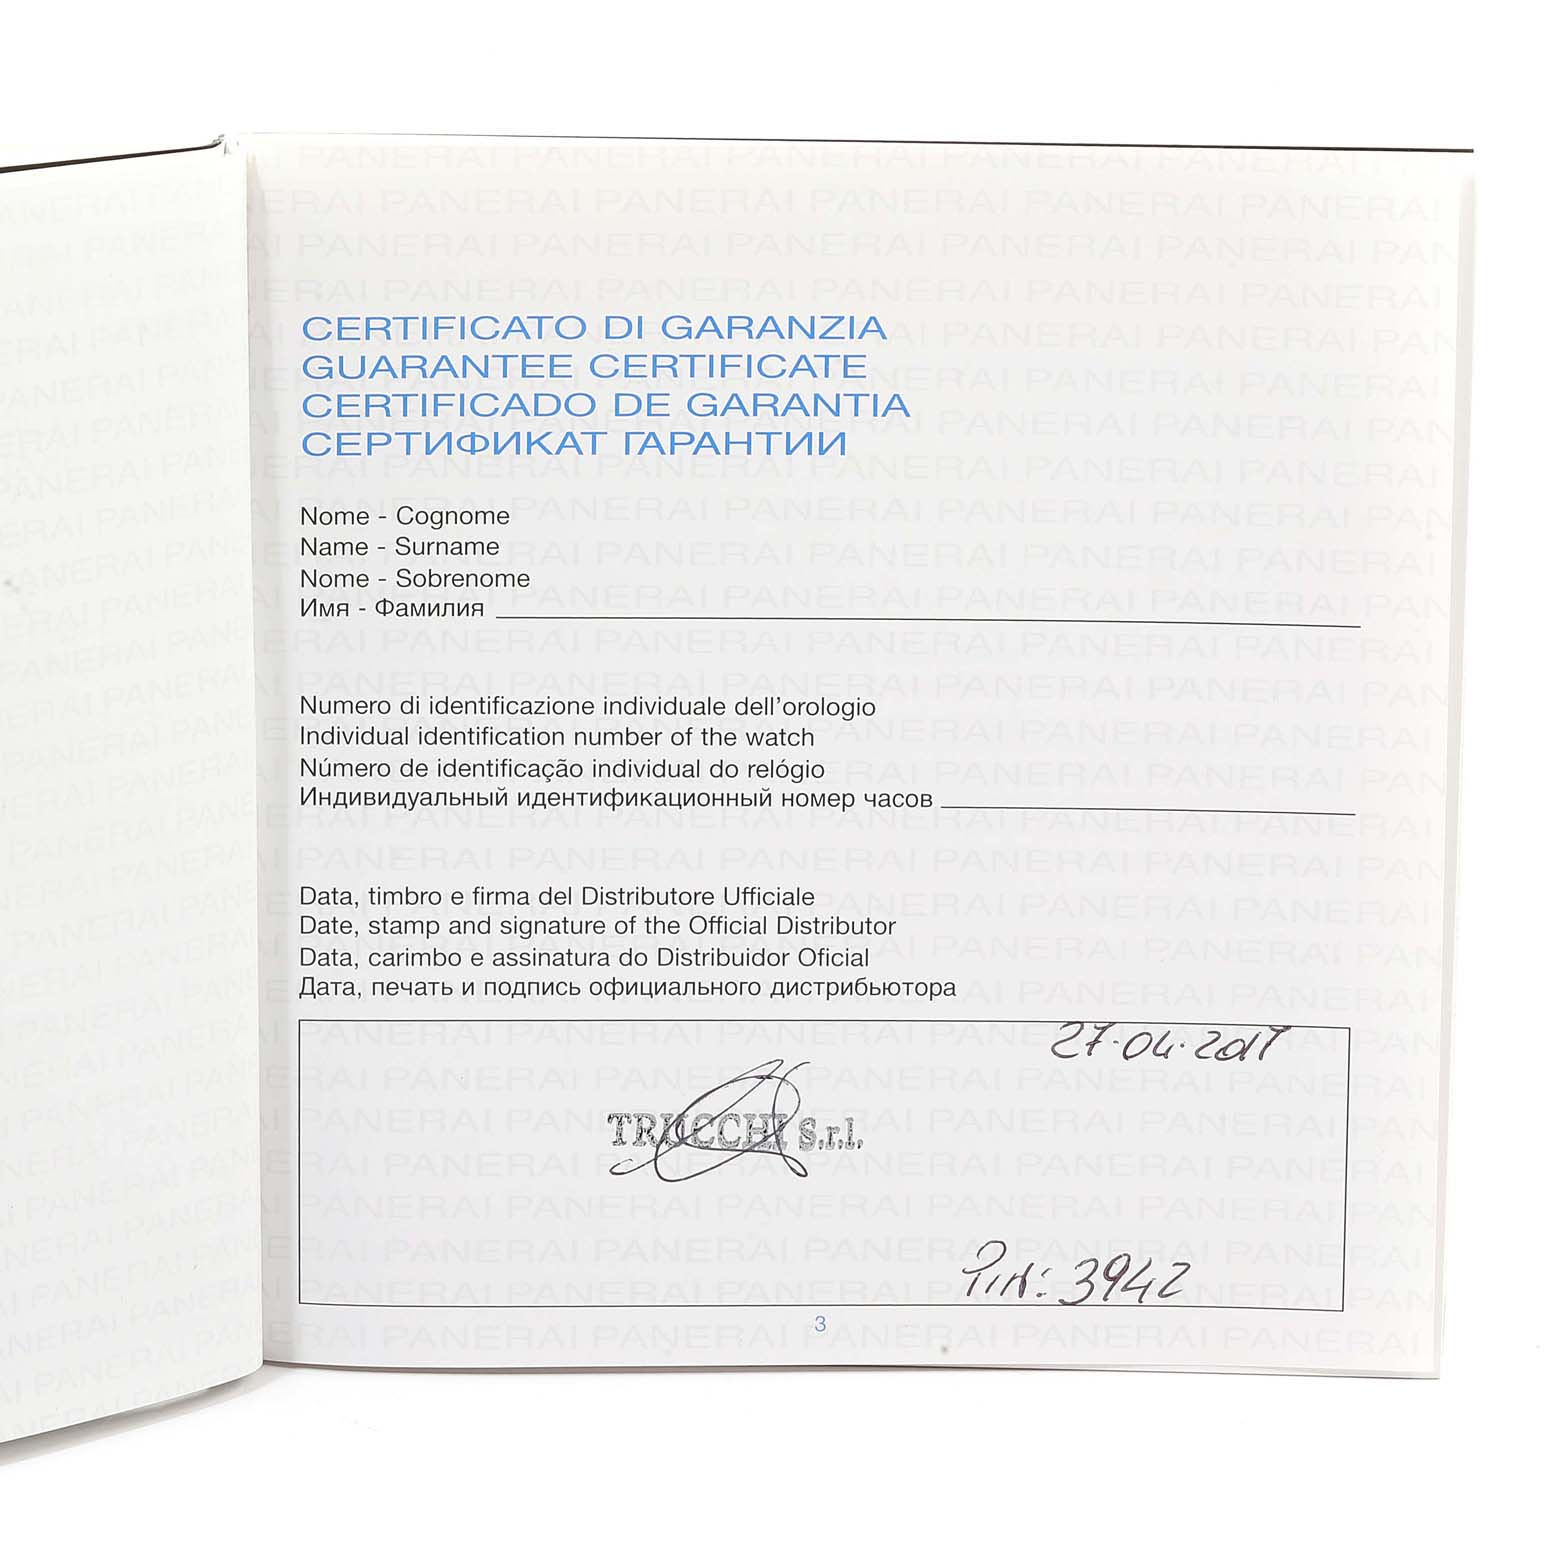 CERTIFICATO DI GARANZIA
GUARANTEE CERTIFICATE
CERTIFICADO DE GARANTIA
СЕРТИФИКАТ ГАРАНТИИ
Nome - Cognome
Name - Surname
Nome - Sobrenome
Имя - Фамилия
Numero di identificazione individuale dell'orologio
Individual identification number of the watch
Número de identificação individual do relógio
Индивидуальный идентификационный номер часов
Data, timbro e firma del Distributore Ufficiale
Date, stamp and signature of the Official Distributor
Data, carimbo e assinatura do Distribuidor Oficial
Дата, печать и подпись официального дистрибьютора
27.04.2017
TRUCCHI S.r.l.
PIN: 3942
3